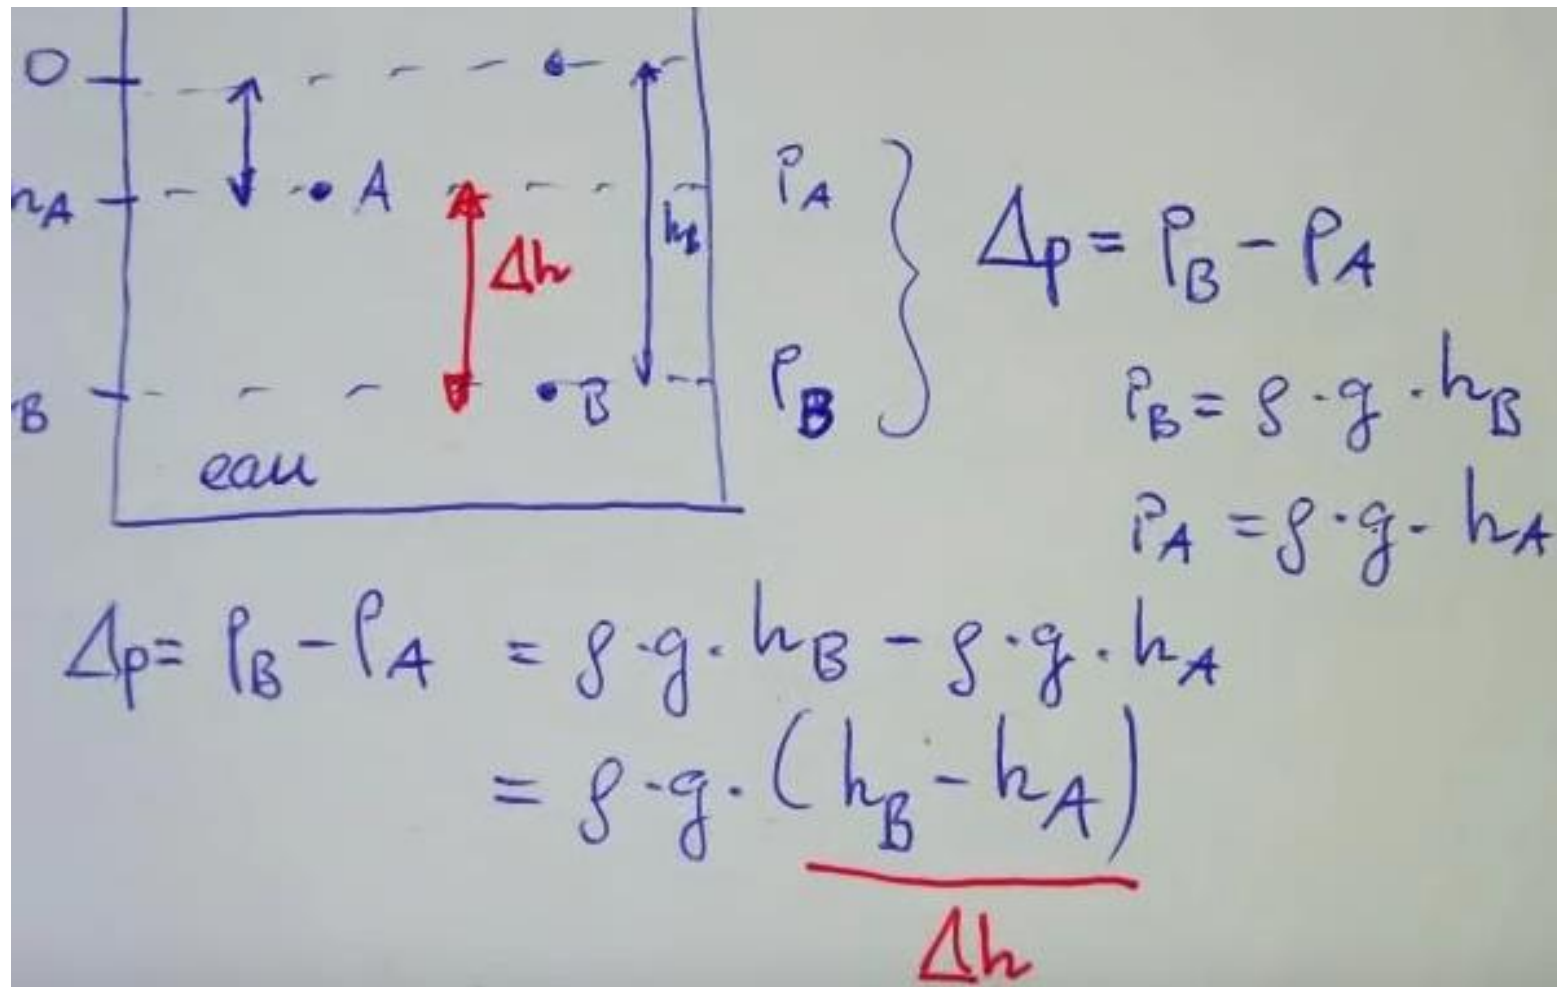 0
hA • A
Δh
hB
B • B
eau
pA
pB
Δp = pB - pA
pB = ρ · g · hB
pA = ρ · g · hA
Δp = pB - pA = ρ · g · hB - ρ · g · hA
= ρ · g · (hB - hA)
Δh